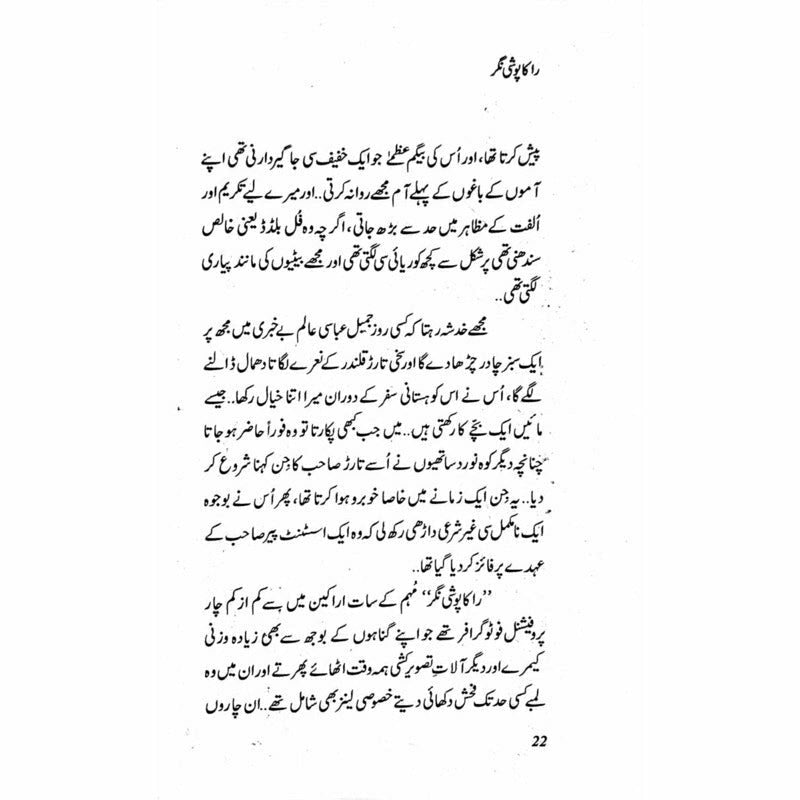 راکاپوشی نگر
پیش کرتا تھا، اور اُس کی بیگم عظمےٰ جو ایک خفیف سی جاگیردارنی تھی اپنے
آموں کے باغوں کے پہلے آم مجھے روانہ کرتی..اور میرے لیے تکریم اور
اُلفت کے مظاہر میں حد سے بڑھ جاتی، اگرچہ وہ فُل بلڈڈ یعنی خالص
سندھنی تھی پر شکل سے کچھ کوریائی سی لگتی تھی اور مجھے بیٹیوں کی مانند پیاری
لگتی تھی..
مجھے خدشہ رہتا کہ کسی روز جمیل عباسی عالم بے خبری میں مجھ پر
ایک سبز چادر چڑھا دے گا اور سخی تارڑ قلندر کے نعرے لگاتا دھمال ڈالنے
لگے گا، اُس نے اس کوہستانی سفر کے دوران میرا اتنا خیال رکھا..جیسے
مائیں ایک بچے کا رکھتی ہیں..میں جب کبھی پکارتا تو وہ فوراً حاضر ہو جاتا
چنانچہ دیگر کوہ نورد ساتھیوں نے اُسے تارڑ صاحب کا جِن کہنا شروع کر
دیا..یہ جِن ایک زمانے میں خاصا خوبرو ہوا کرتا تھا، پھر اُس نے بوجوہ
ایک نامکمل سی غیر شرعی داڑھی رکھ لی کہ وہ ایک اسسٹنٹ پیر صاحب کے
عہدے پر فائز کر دیا گیا تھا..
’’راکاپوشی نگر‘‘ مُہم کے سات اراکین میں سے کم از کم چار
پروفیشنل فوٹوگرافر تھے جو اپنے گناہوں کے بوجھ سے بھی زیادہ وزنی
کیمرے اور دیگر آلاتِ تصویر کشی ہمہ وقت اٹھائے پھرتے اور ان میں وہ
لمبے کسی حد تک فحش دکھائی دیتے خصوصی لینز بھی شامل تھے..ان چاروں
22